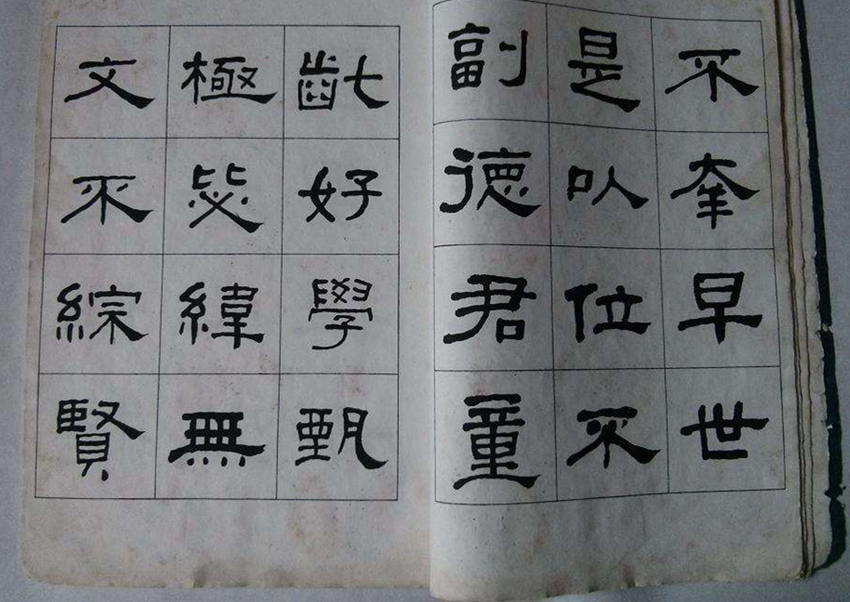 不幸早世
是以位不
副德君童
齔好學甄
極毖緯無
文不綜賢